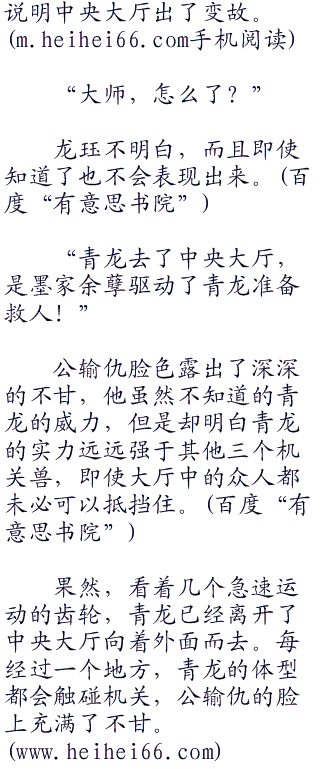 说明中央大厅出了变故。
(m.heihei66.com手机阅读)
“大师，怎么了？”
龙珏不明白，而且即使
知道了也不会表现出来。(百
度“有意思书院”)
“青龙去了中央大厅，
是墨家余孽驱动了青龙准备
救人！”
公输仇脸色露出了深深
的不甘，他虽然不知道的青
龙的威力，但是却明白青龙
的实力远远强于其他三个机
关兽，即使大厅中的众人都
未必可以抵挡住。(百度“有
意思书院”)
果然，看着几个急速运
动的齿轮，青龙已经离开了
中央大厅向着外面而去。每
经过一个地方，青龙的体型
都会触碰机关，公输仇的脸
上充满了不甘。
(www.heihei66.com)